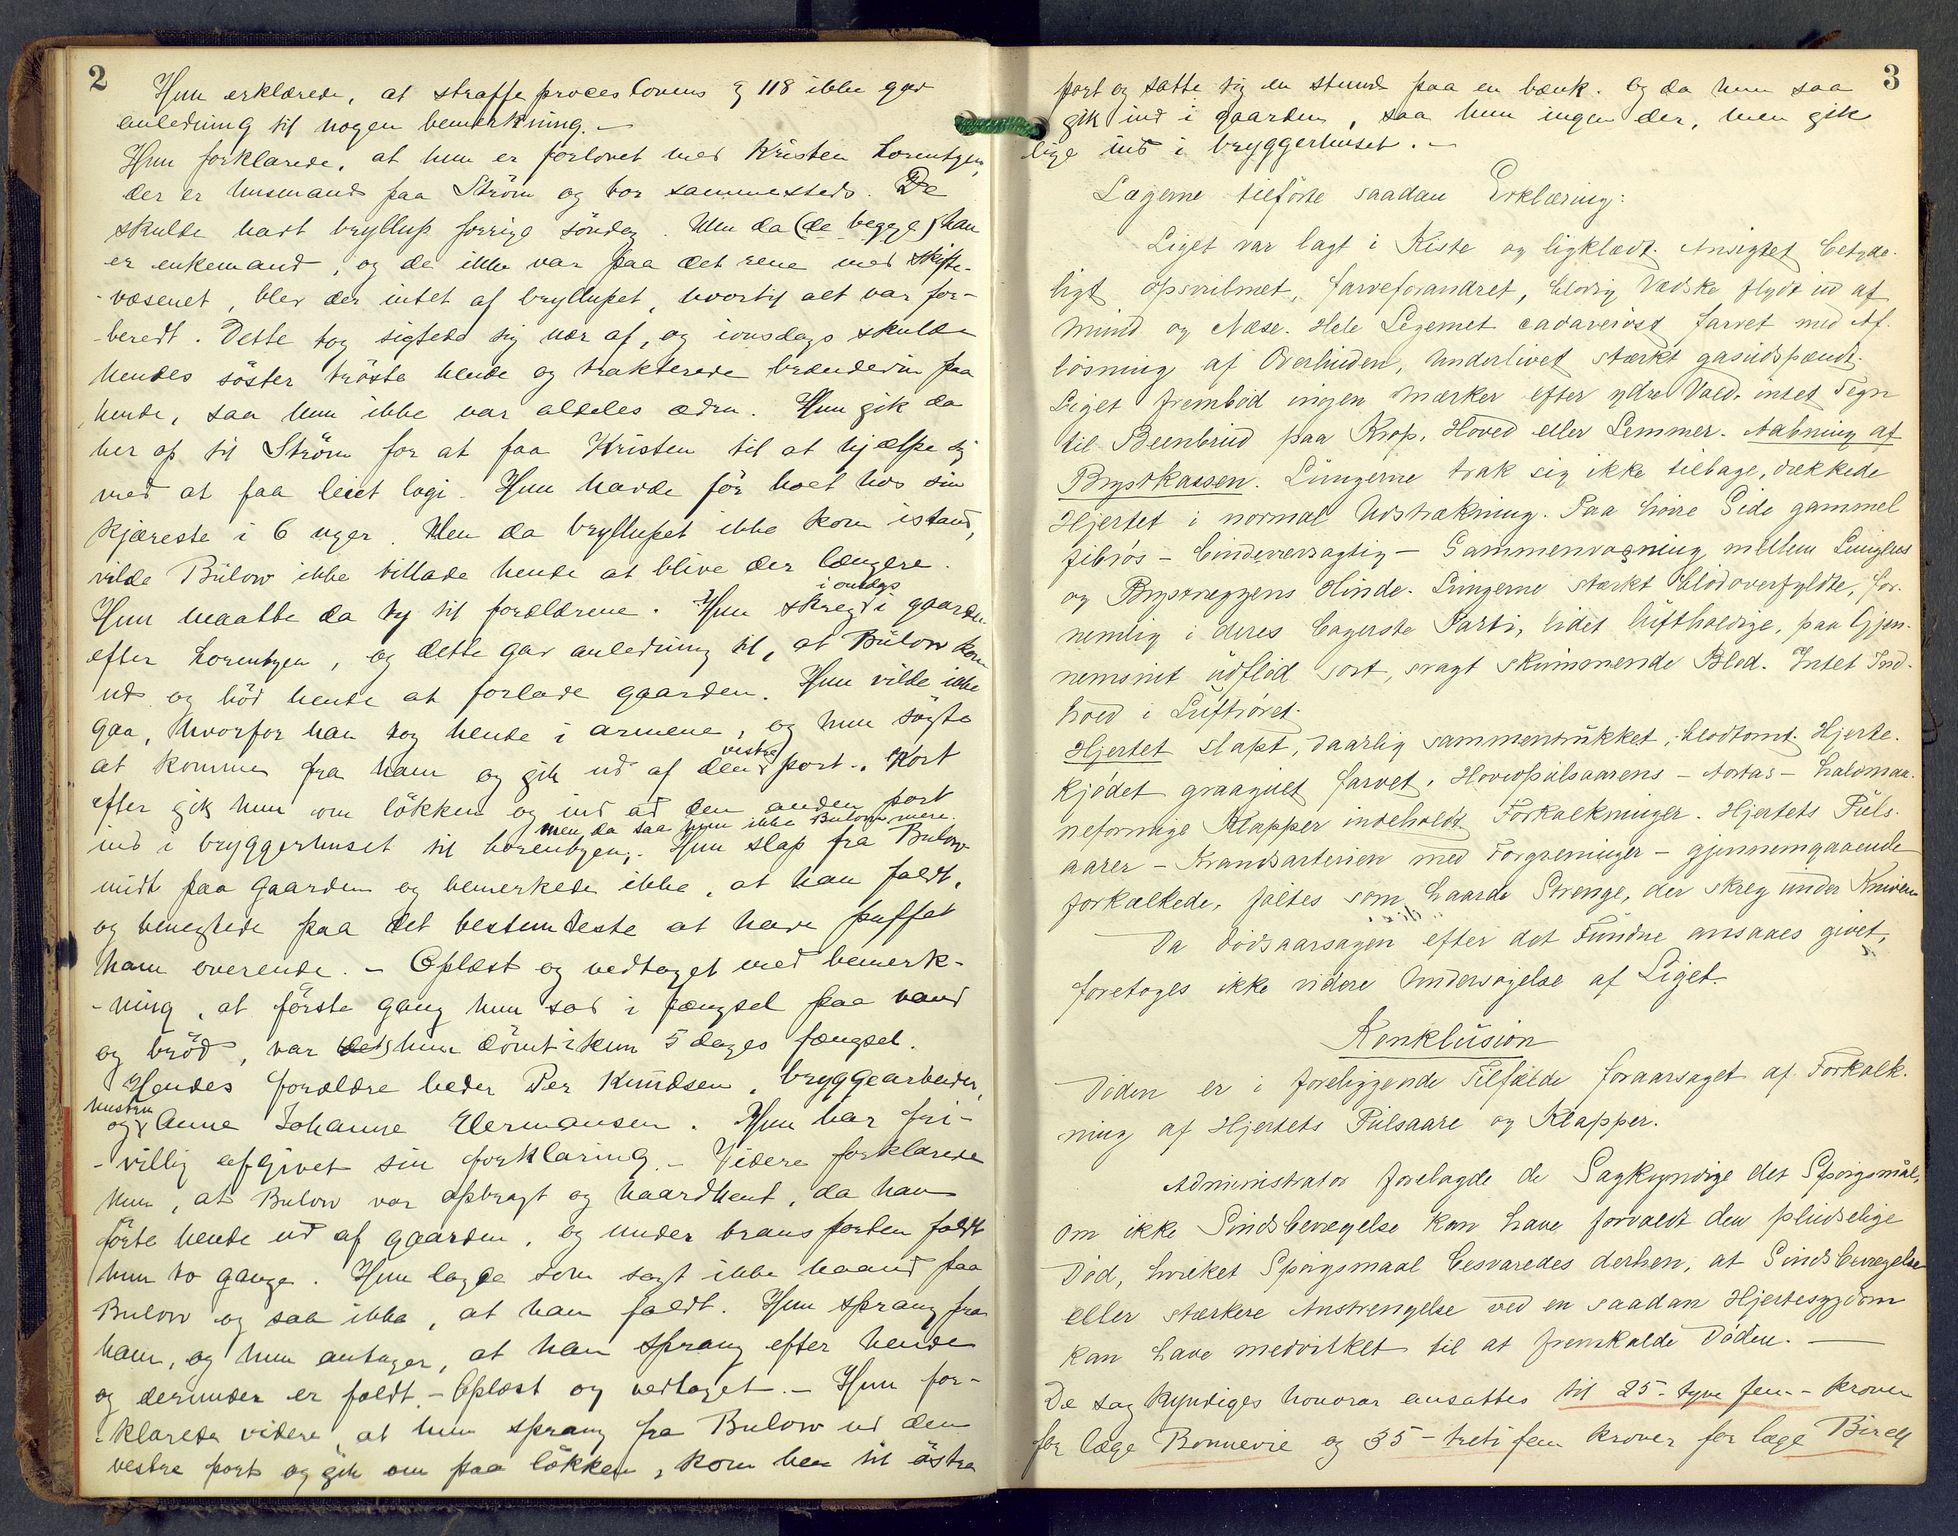 2
Hun erklærede, at straffeproceslovens § 118 ikke gav
anledning til nogen bemerkning. —
Hun forklarede, at hun er forlovet med Kristen Lorentzen,
der er husmand paa Ström og bor sammesteds. De
skulde havt bryllup forrige söndag. Men da (de begge) han
er enkemand, og da ikke var paa det rene med skifte-
-væsenet, blev der intet af bryllupet, hvortil alt var for-
-beredt. Dette tog sigtede sig nær af, og onsdags skulde
hendes söster tröste hende og trakterede brændevin paa
hende, saa hun ikke var aldeles ædru. Hun gik da
her op til Ström for at faa Kristen til at hjælpe sig
med at faa leiet logi. Hun havde för boet hos sin
kjæreste i 6 uger. Men da bryllupet ikke kom istand,
vilde Bülow ikke tillade hende at blive der længere.
Hun maatte da ty til forældrene. Hun skreg i onsdags i gaarden
efter Lorentzen, og dette gav anledning til, at Bülow kom
ud og böd hende at forlade gaarden. Hun vilde ikke
gaa, hvorfor han tog hende i armene, og hun sögte
at komme fra ham og gik ud af den vestre port. Kort
efter gik hun om lökken og ind ad den anden port
ind i bryggerhuset til Lorentzen, men da saa hun ikke Bülow mere. Hun slap fra Bülow
midt paa gaarden og bemerkede ikke, at han faldt,
og benegtede paa det bestemteste at have puffet
ham overende. — Oplæst og vedtaget med bemerk-
-ning, at förste gang hun sad i fængsel paa vand
og bröd, var (det) hun dömt i kun 5 dages fængsel.
Hendes forældre heder Per Knudsen, bryggearbeider,
og hustru Anne Johanne Hermansen. Hun har fri-
-villig afgivet sin forklaring. — Videre forklarede
hun, at Bulow var opbragt og haardhent, da han
förte hende ud af gaarden, og under transporten faldt
hun to gange. Hun lagde som sagt ikke haand paa
Bulow og saa ikke, at han faldt. Hun sprang fra
ham, og hun antager, at han sprang efter hende
og derunder er faldt. — Oplæst og vedtaget. — Hun for-
-klarede videre, at hun sprang fra Bulow ud den
vestre port og gik om paa lökken, kom hen til östre
3
port og satte sig en stund paa en bænk. Og da hun saa
gik ind i gaarden, saa hun ingen der, men gik
lige ind i bryggerhuset. —
Lægerne tilførte saadan Erklæring:
Liget var lagt i Kiste og ligklædt. Ansigtet betyde-
ligt opsvulmet, farveforandret, blodig Vædske flydt ud af
Mund og Næse. Hele Legemet cadaverøst farvet med Af-
løsning af Overhuden, Underlivet stærkt gasudspændt.
Liget frembød ingen Mærker efter ydre Vold. intet Tegn
til Beenbrud paa Krop, Hoved eller Lemmer. Aabning af
Brystkassen. Lungerne trak sig ikke tilbage, dækkede
Hjertet i normal Udstrækning. Paa høire Side gammel
fibrøs — bindevævsagtig — Sammenvoxning mellem Lungens
og Brystvæggens Hinde. Lungerne stærkt blodoverfyldte, for-
nemlig i deres bagerste Parti, lidet luftholdige, paa Gjen-
nemsnit udflød sort, svagt skummende Blod. Intet Ind-
hold i Luftrøret.
Hjertet slapt, daarlig sammentrukket, blodtomt. Hjerte-
kjødet graagult farvet. Hovedpulsaarens — Aortas — halvmaa-
neformige Klapper indeholdt Forkalkninger. Hjertets Puls-
aarer — Krandsarterien med Forgreninger — gjennemgaaende
forkalkede, føltes som haarde Strenge, der skreg under Kniven.
Da Dødsaarsagen efter det Fundne ansaaes givet,
foretoges ikke videre Undersøgelse af Liget.
Konklusion
Døden er i foreliggende Tilfælde foraarsaget af Forkalk-
ning af Hjertets Pulsaare og Klapper.
Administrator forelagde de Sagkyndige det Spørgsmål,
om ikke Sindsbevægelse kan have forvoldt den pludselige
Død, hvilket Spørgsmaal besvaredes derhen, at Sindsbevægelse
eller stærkere Anstrengelse ved en saadan Hjertesygdom
kan have medvirket til at fremkalde Døden. —
De sagkyndiges honorar ansattes til 25 - tyve fem - kroner
for læge Bonnevie og 35 - treti fem kroner for læge